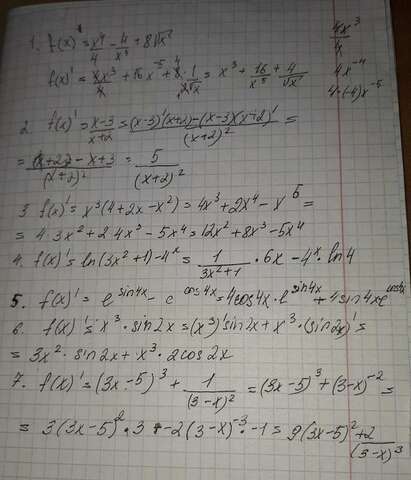 1. f(x)' = x⁴/4 - 4/x³ + 8√x'
4x³/4
f(x)' = 4x³/4 + 16x⁻⁵ + 8 · 1/2√x = x³ + 16/x⁵ + 4/√x'
4x⁻⁴
4·(-4)x⁻⁵
2. f(x)' = x-3/x+2 = (x-3)'(x+2)-(x-3)(x+2)'/(x+2)² =
= x+2-x+3/(x+2)² = 5/(x+2)²
3. f(x)' = x³(4+2x-x²) = 4x³+2x⁴-x⁵ =
= 4·3x²+2·4x³-5x⁴ = 12x²+8x³-5x⁴
4. f(x)' = ln(3x²+1)-4ˣ = 1/3x²+1 · 6x - 4ˣ·ln4
5. f(x)' = e^sin4x - e^cos4x = 4cos4x·e^sin4x + 4sin4x e^cos4x
6. f(x)' = x³·sin2x = (x³)'sin2x + x³·(sin2x)' =
= 3x²·sin2x + x³·2cos2x
7. f(x)' = (3x-5)³ + 1/(3-x)² = (3x-5)³+(3-x)⁻² =
= 3(3x-5)²·3 + -2(3-x)⁻³·-1 = 9(3x-5)²+2/(3-x)³